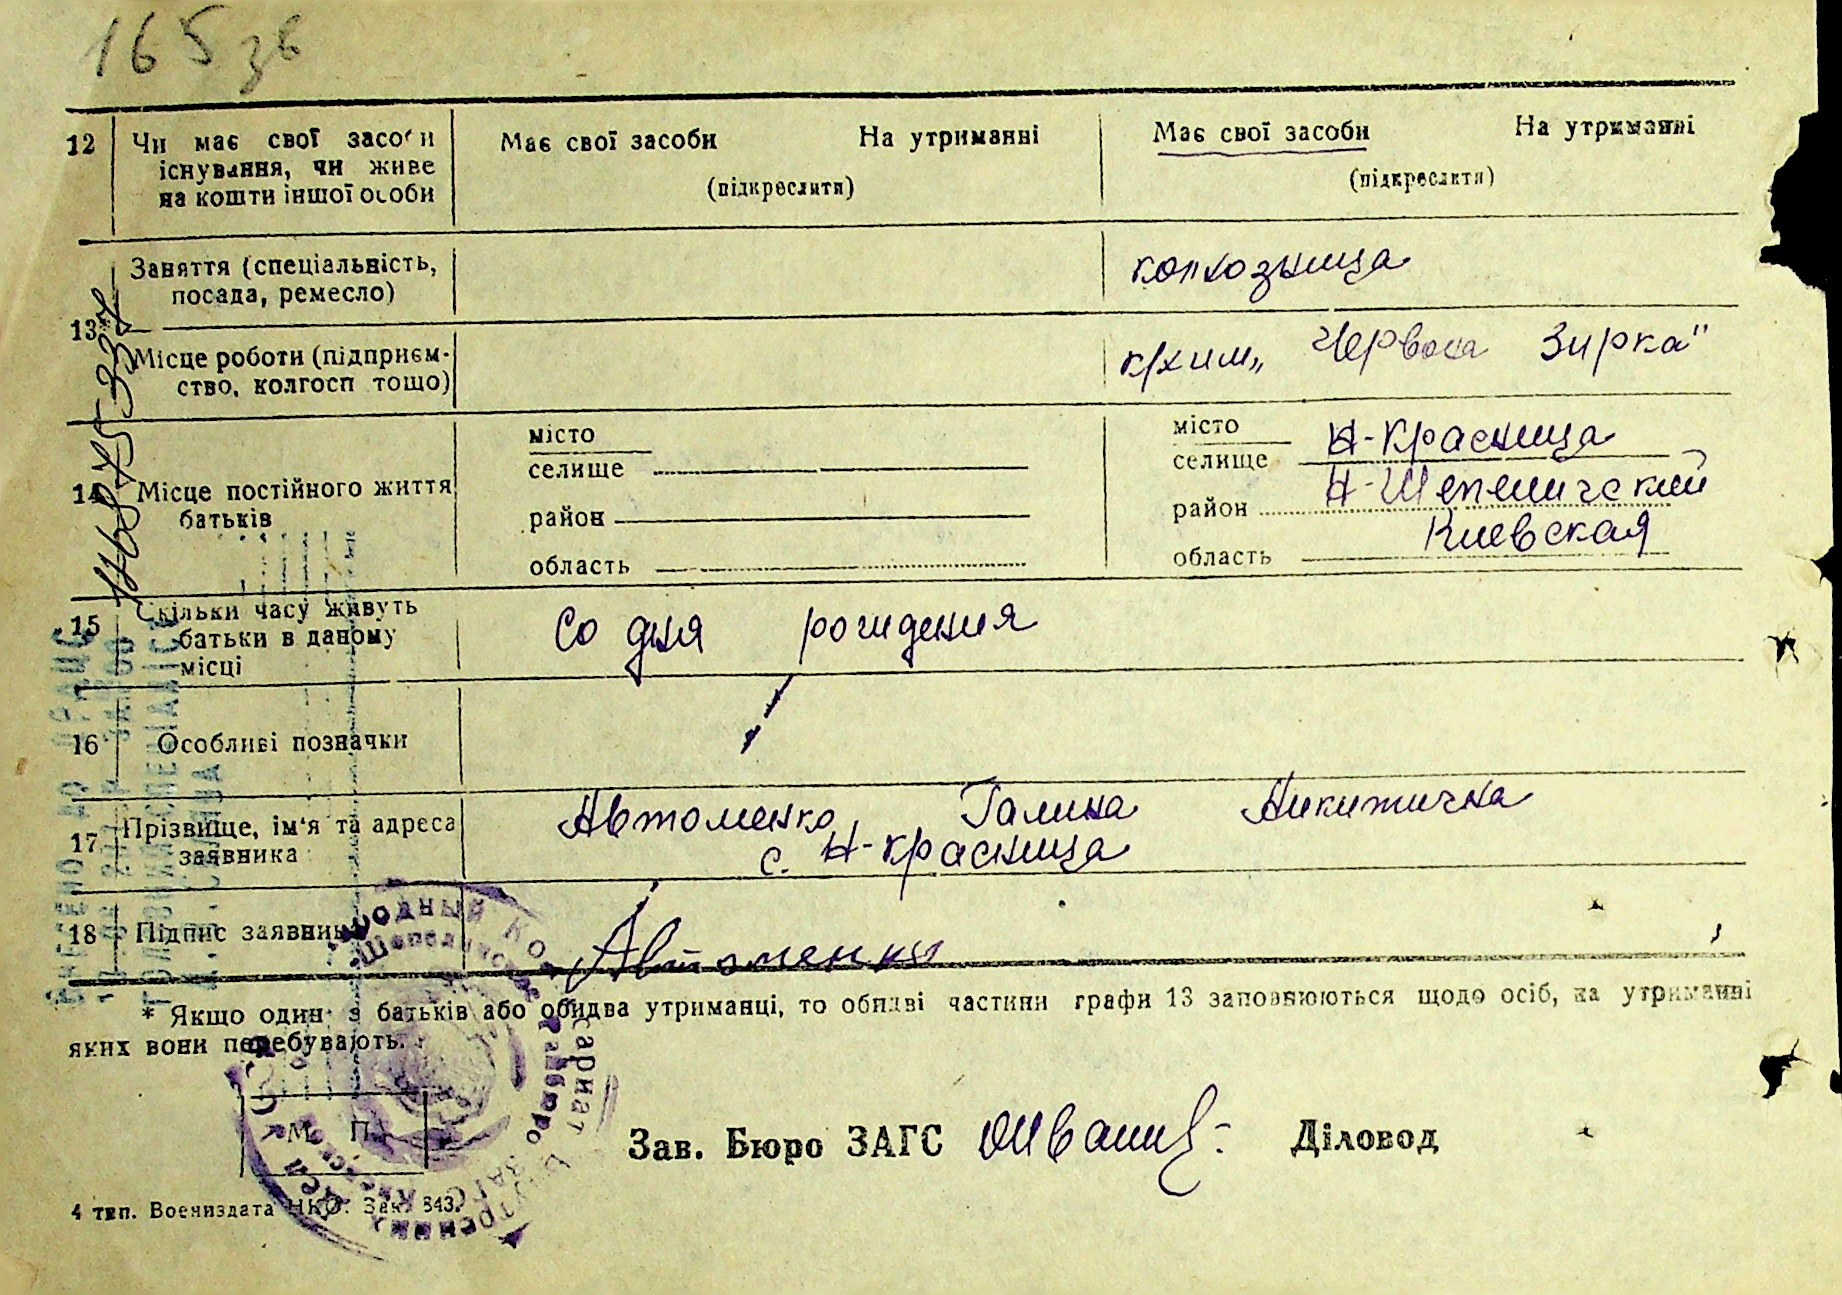 165 зв
12 Чи має свої засоби Має свої засоби На утриманні Має свої засоби На утриманні
існування, чи живе (підкреслити) (підкреслити)
на кошти іншої особи
Заняття (спеціальність, колхозница
посада, ремесло)
13*
Місце роботи (підприєм- к/х им „Червона Зирка"
ство, колгосп тощо)
місто місто Н-Красница
селище селище
14 Місце постійного життя Н-Шепеличский
батьків район район
Киевская
область область
15 Скільки часу живуть Со дня рождения
батьки в даному
місці
16 Особливі позначки
17 Прізвище, ім'я та адреса Автоменко Галина Никитична
заявника с. Н-красница
18 Підпис заявника Автоменко
* Якщо один з батьків або обидва утриманці, то обидві частини графи 13 заповнюються щодо осіб, на утриманні
яких вони перебувають.
М. П. Зав. Бюро ЗАГС Діловод
4 тип. Воениздата НКО. Зак. 843.